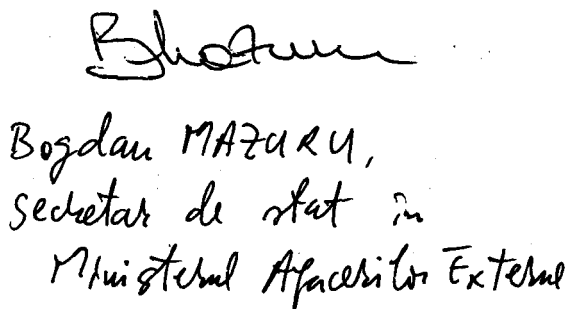 Bogdan MAZURU,
secretar de stat în
Ministerul Afacerilor Externe